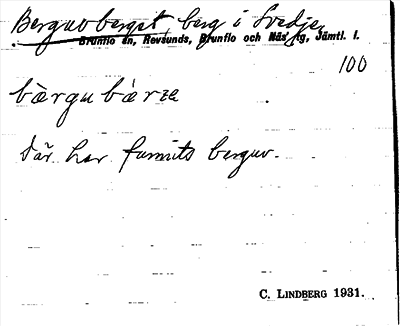 Berguvberget berg i Svedje,
Brunflo sn, Revsunds, Brunflo och Näs tg, Jämtl. l.
100
bàrgubàrꭍe
där har funnits berguv.
C. LINDBERG 1931.